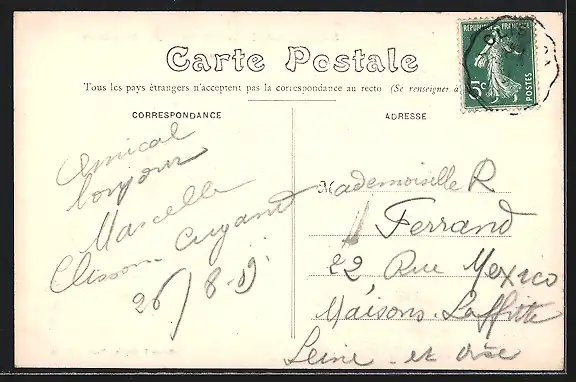 Carte Postale
Tous les pays étrangers n'acceptent pas la correspondance au recto (Se renseigner à
REPUBLIQUE FRANÇAISE
5c
POSTES
CORRESPONDANCE
Amical
bonjour
Marcelle
Clisson
26/8-09
ADRESSE
Mademoiselle R
Ferrand
22 Rue Mexico
Maisons-Laffitte
Seine-et Oise